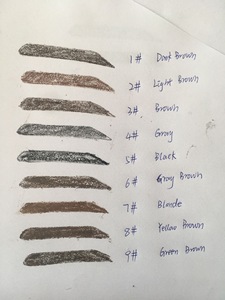 1# Dark Brown
2# Light Brown
3# Brown
4# Gray
5# Black
6# Gray Brown
7# Blonde
8# Yellow Brown
9# Green Brown